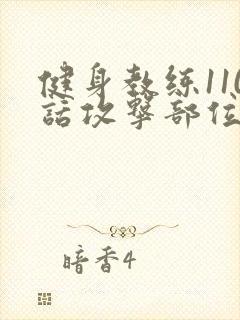 健身教练110
話攻擊部位
暗香4